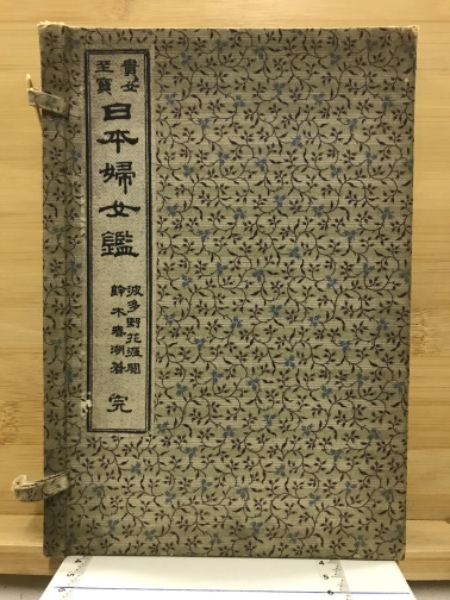 貴女
至寶
日本婦女鑑
波多野花涯閲
鈴木春湖著
完